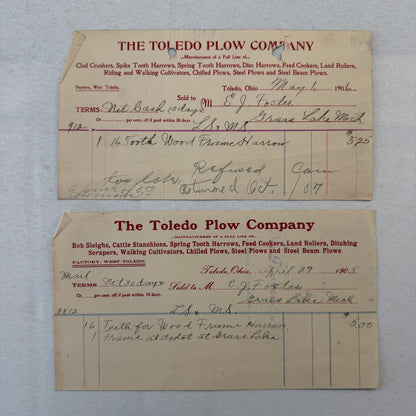 THE TOLEDO PLOW COMPANY
Manufacturers of a Full Line of
Clod Crushers, Spike Tooth Harrows, Spring Tooth Harrows, Disc Harrows, Feed Cookers, Land Rollers,
Riding and Walking Cultivators, Chilled Plows, Steel Plows and Steel Beam Plows.
Factory, West Toledo.
Toledo, Ohio, May 1, 1906
Sold to M E J Foster
TERMS: Net Cash 10 days
Or per cent. off if paid within 10 days.
Grass Lake Mich
912 LS & MS
1 16 Tooth Wood Frame Harrow $5.20
too late Refused Cam
Returned Oct. 1/07
The Toledo Plow Company
MANUFACTURERS OF A FULL LINE OF
Bob Sleighs, Cattle Stanchions, Spring Tooth Harrows, Feed Cookers, Land Rollers, Ditching
Scrapers, Walking Cultivators, Chilled Plows, Steel Plows and Steel Beam Plows
FACTORY, WEST TOLEDO.
Mail Toledo, Ohio, April 27 1908
TERMS Net 30 days Sold to M E J Foster
Or per cent. off if paid within 10 days.
Grass Lake Mich
3812 LS & MS. $
16 Teeth for Wood Frame Harrow, 5.00
1 Frame at depot at Grass Lake